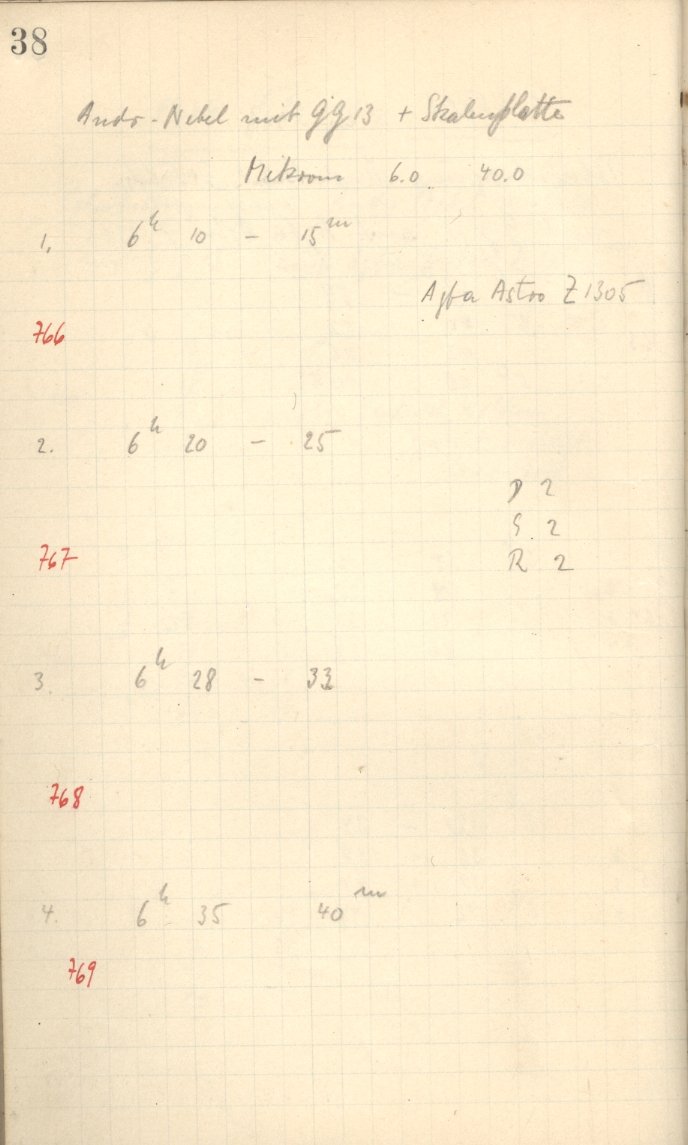 38
Andr-Nebel mit GG 13 + Skalenplatte
Mikrom 6.0 40.0
1. 6h 10 - 15m
Agfa Astro Z 1305
766
2. 6h 20 - 25
D 2
S 2
R 2
767
3. 6h 28 - 33
768
4. 6h 35 40m
769